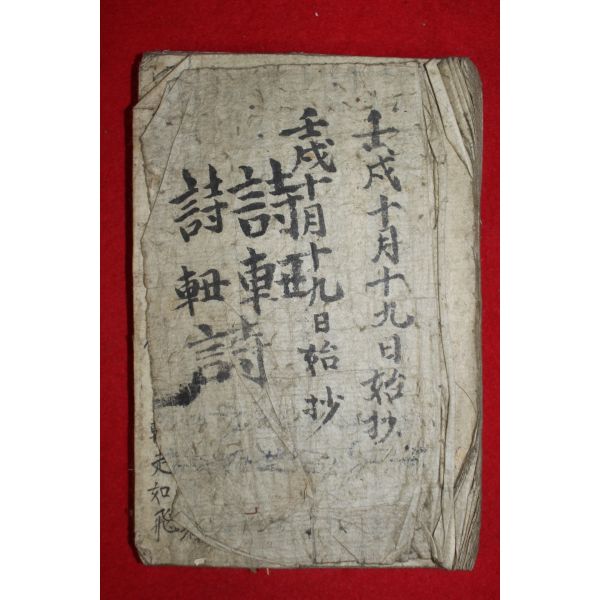 壬戌十月十九日始抄
壬戌十月十九日始抄
詩
詩
詩
走如飛